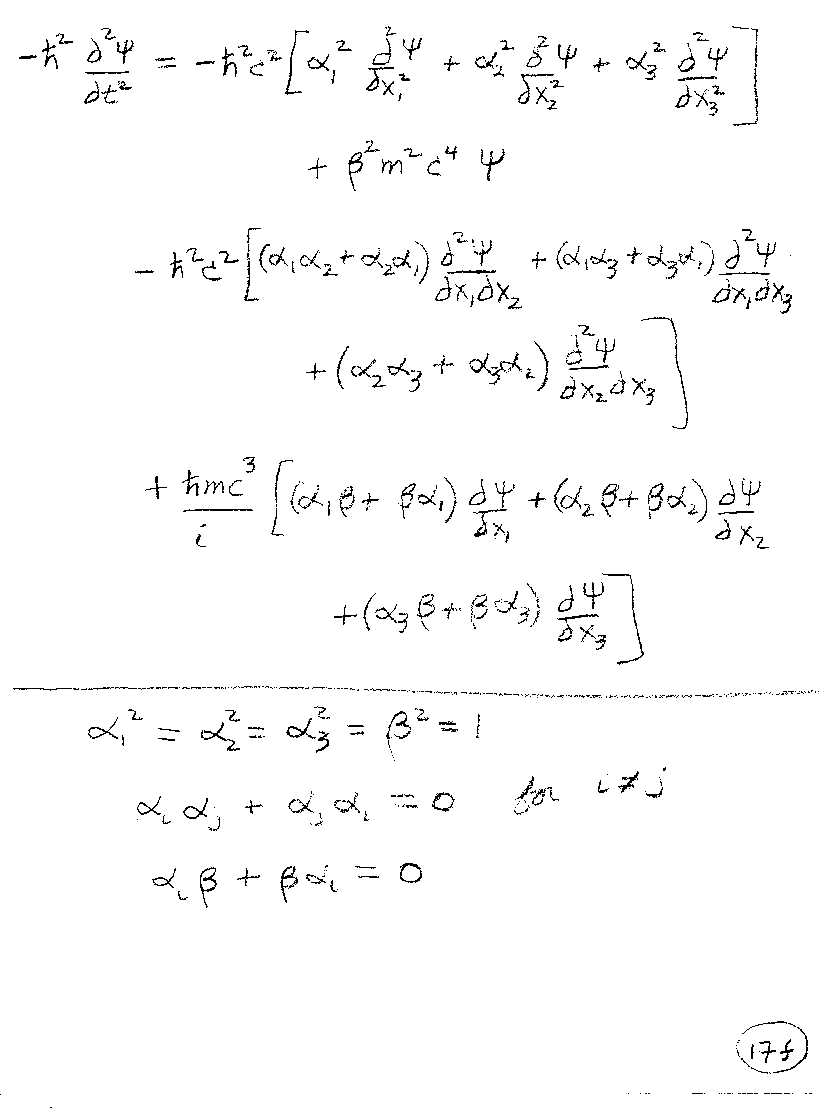 -ħ² ∂²ψ/∂t² = -ħ²c² [ α₁² ∂²ψ/∂x₁² + α₂² ∂²ψ/∂x₂² + α₃² ∂²ψ/∂x₃² ]
+ β²m²c⁴ ψ
- ħ²c² [ (α₁α₂ + α₂α₁) ∂²ψ/∂x₁∂x₂ + (α₁α₃ + α₃α₁) ∂²ψ/∂x₁∂x₃
+ (α₂α₃ + α₃α₂) ∂²ψ/∂x₂∂x₃ ]
+ ħmc³/i [ (α₁β + βα₁) ∂ψ/∂x₁ + (α₂β + βα₂) ∂ψ/∂x₂
+ (α₃β + βα₃) ∂ψ/∂x₃ ]
α₁² = α₂² = α₃² = β² = 1
αᵢαⱼ + αⱼαᵢ = 0 for i ≠ j
αᵢβ + βαᵢ = 0
17f